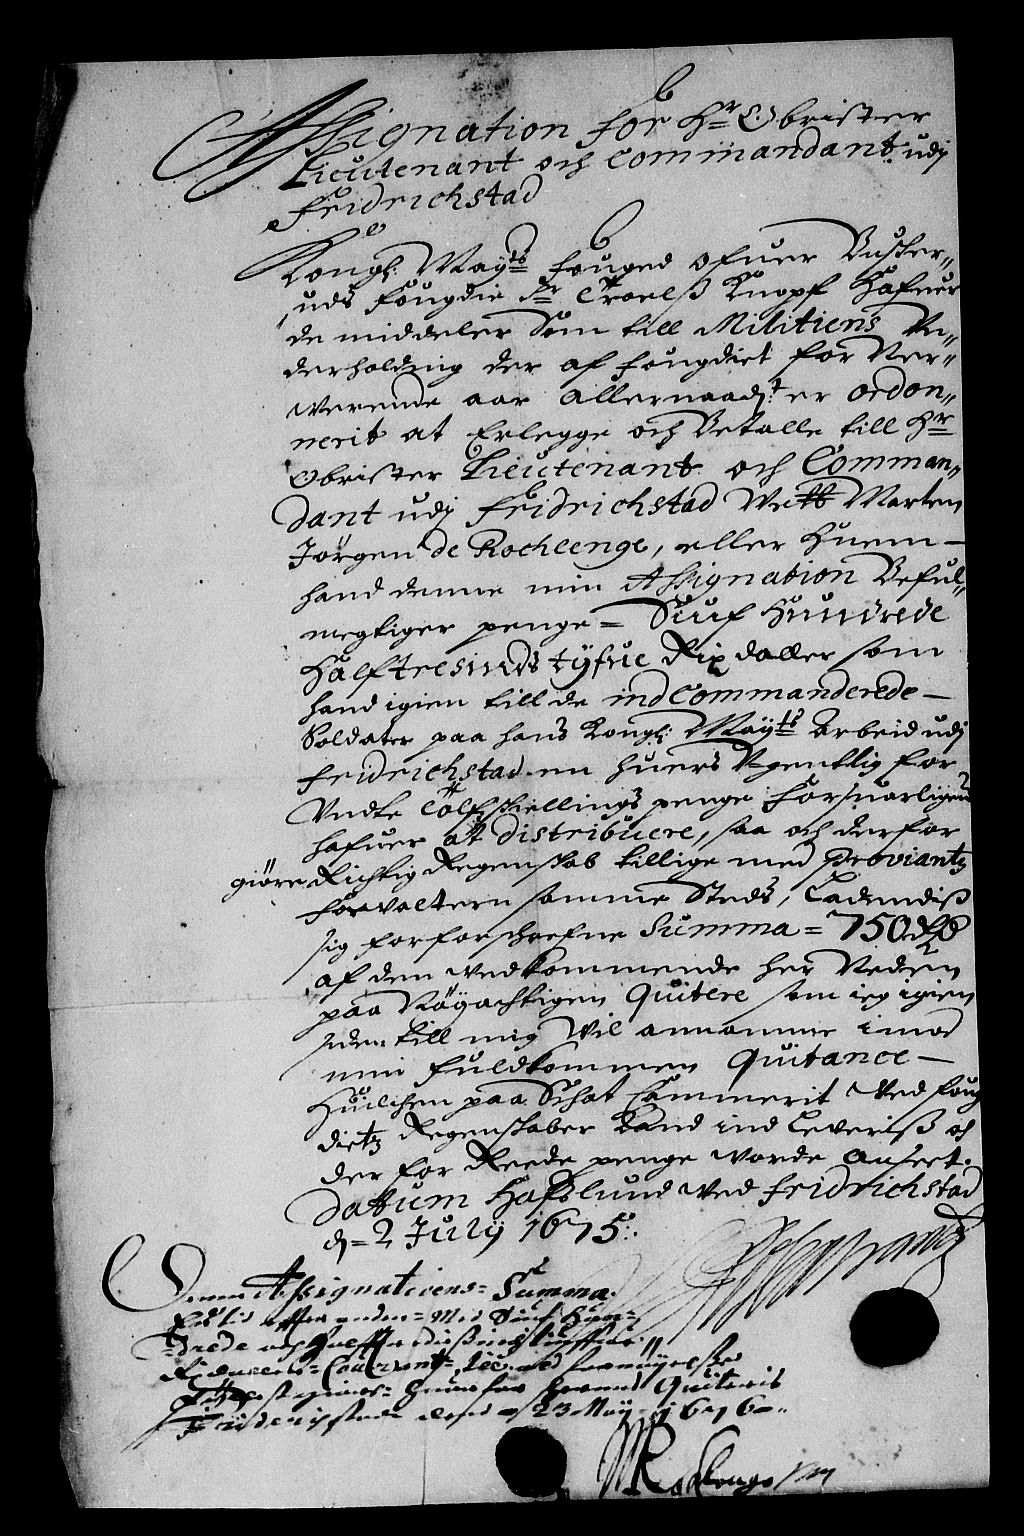 Assignation for Hr Obrister
Lieutenant och Commandant udj
Fridrichstad
Kongl: Mayts fouged ofuer Busker„
„uds fougdie Sr Troelss Knopf Hafuer
de middeler Som till Militiens Un„
derholding der af fougdiet for Ner„
werende aar allernaadist er ordon„
nerit at Erlegge och Betalle till Hr
Obrister Lieutenant och Comman„
dant udj Fridrichstad
Jörgen de Rochlenge, eller Huem
hand denne min Assignation Beful„
megtiger penge = Siuf Hundrede
Halftresinds tÿfue Rixdaller som
hand igien till de ind Commanderede
Soldater paa hans Kongl: Mayts Arbeid udj
Fridrichstad en huers Ugentlig for
Undte Tolf skillings penge forsuarligen
hafuer at distribuere, saa och derfor
giöre Richtig Regenskab tillige med Proviantz
forvaltern samme Steds,
sig forforschrefne Summa = 750 Rd
af den vedkommende her Neden
paa Nöÿachtigen Quitere som ieg igien
siden till mig Vil annamme imod
min fuldkommen Quitance
Huilchen paa Schat Cammerit Ved foug
dietz Regenskaber Kand ind Leveriss och
der for Reede penge worde Ansect.
Datum Hafslund Ved Fridrichstad
d = 2 Julÿ 1675:
Denne Assignations = Summa.
med Siuf Hun=
=drede och
Rixdaller = Courrant =
Quiteris
Friderichstad d 23 Maÿ = 1676 =